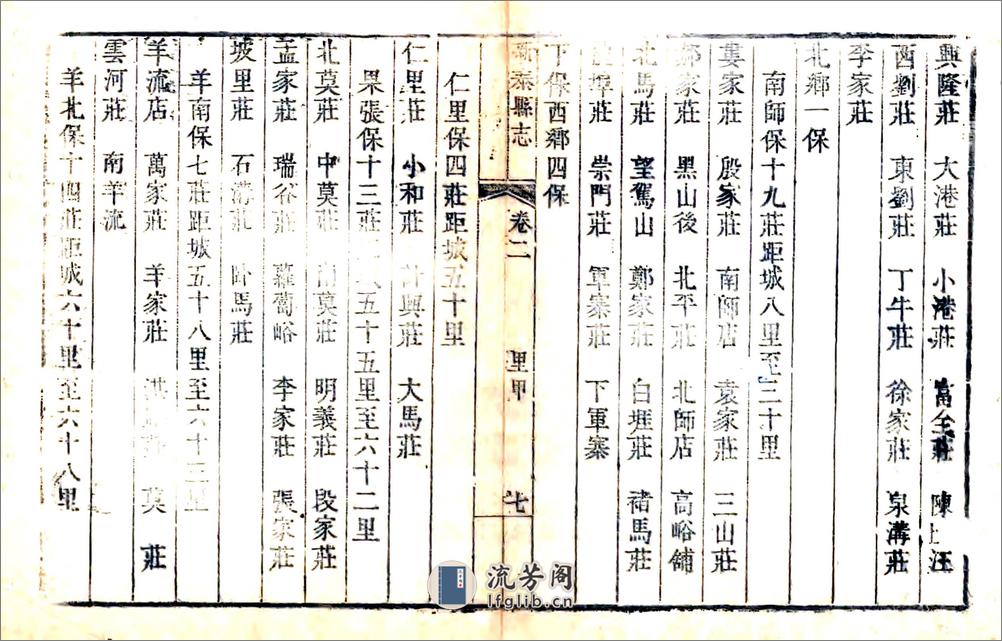 興隆莊 大港莊 小港莊 富全莊 陳 汪
西劉莊 東劉莊 丁牛莊 徐家莊 泉溝莊
李家莊
北鄉一保
南師保十九莊距城八里至三十里
婁家莊 殷家莊 南師店 袁家莊 三山莊
家莊 黑山後 北平莊 北師店 高峪舖
北馬莊 望駕山 鄭家莊 白堐莊 褚馬莊
莊 崇門莊 軍寨莊 下軍寨
下保西鄉四保
新泰縣志 卷二 里甲 七
仁里保四莊距城五十里
仁里莊 小和莊 興莊 大馬莊
果張保十三莊 五十五里至六十二里
北莫莊 中莫莊 南莫莊 明義莊 段家莊
孟家莊 瑞谷莊 蘿蔔峪 李家莊 張家莊
坡里莊 石溝 臥馬莊
羊南保七莊距城五十八里至六十三里
羊流店 萬家莊 羊家莊 洪 莊 莫 莊
雲河莊 南羊流
羊北保十四莊距城六十里至六十八里
流芳阁
lfglib.cn